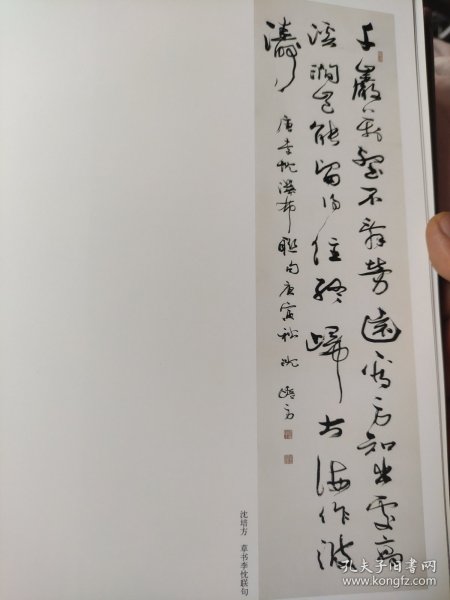 千巖万壑不辞劳遠看方知出處高
溪澗豈能留得住終歸大海作波
濤
唐李忱瀑布聯句庚寅秋沈培方
沈培方 草书李忱联句
孔夫子旧书网